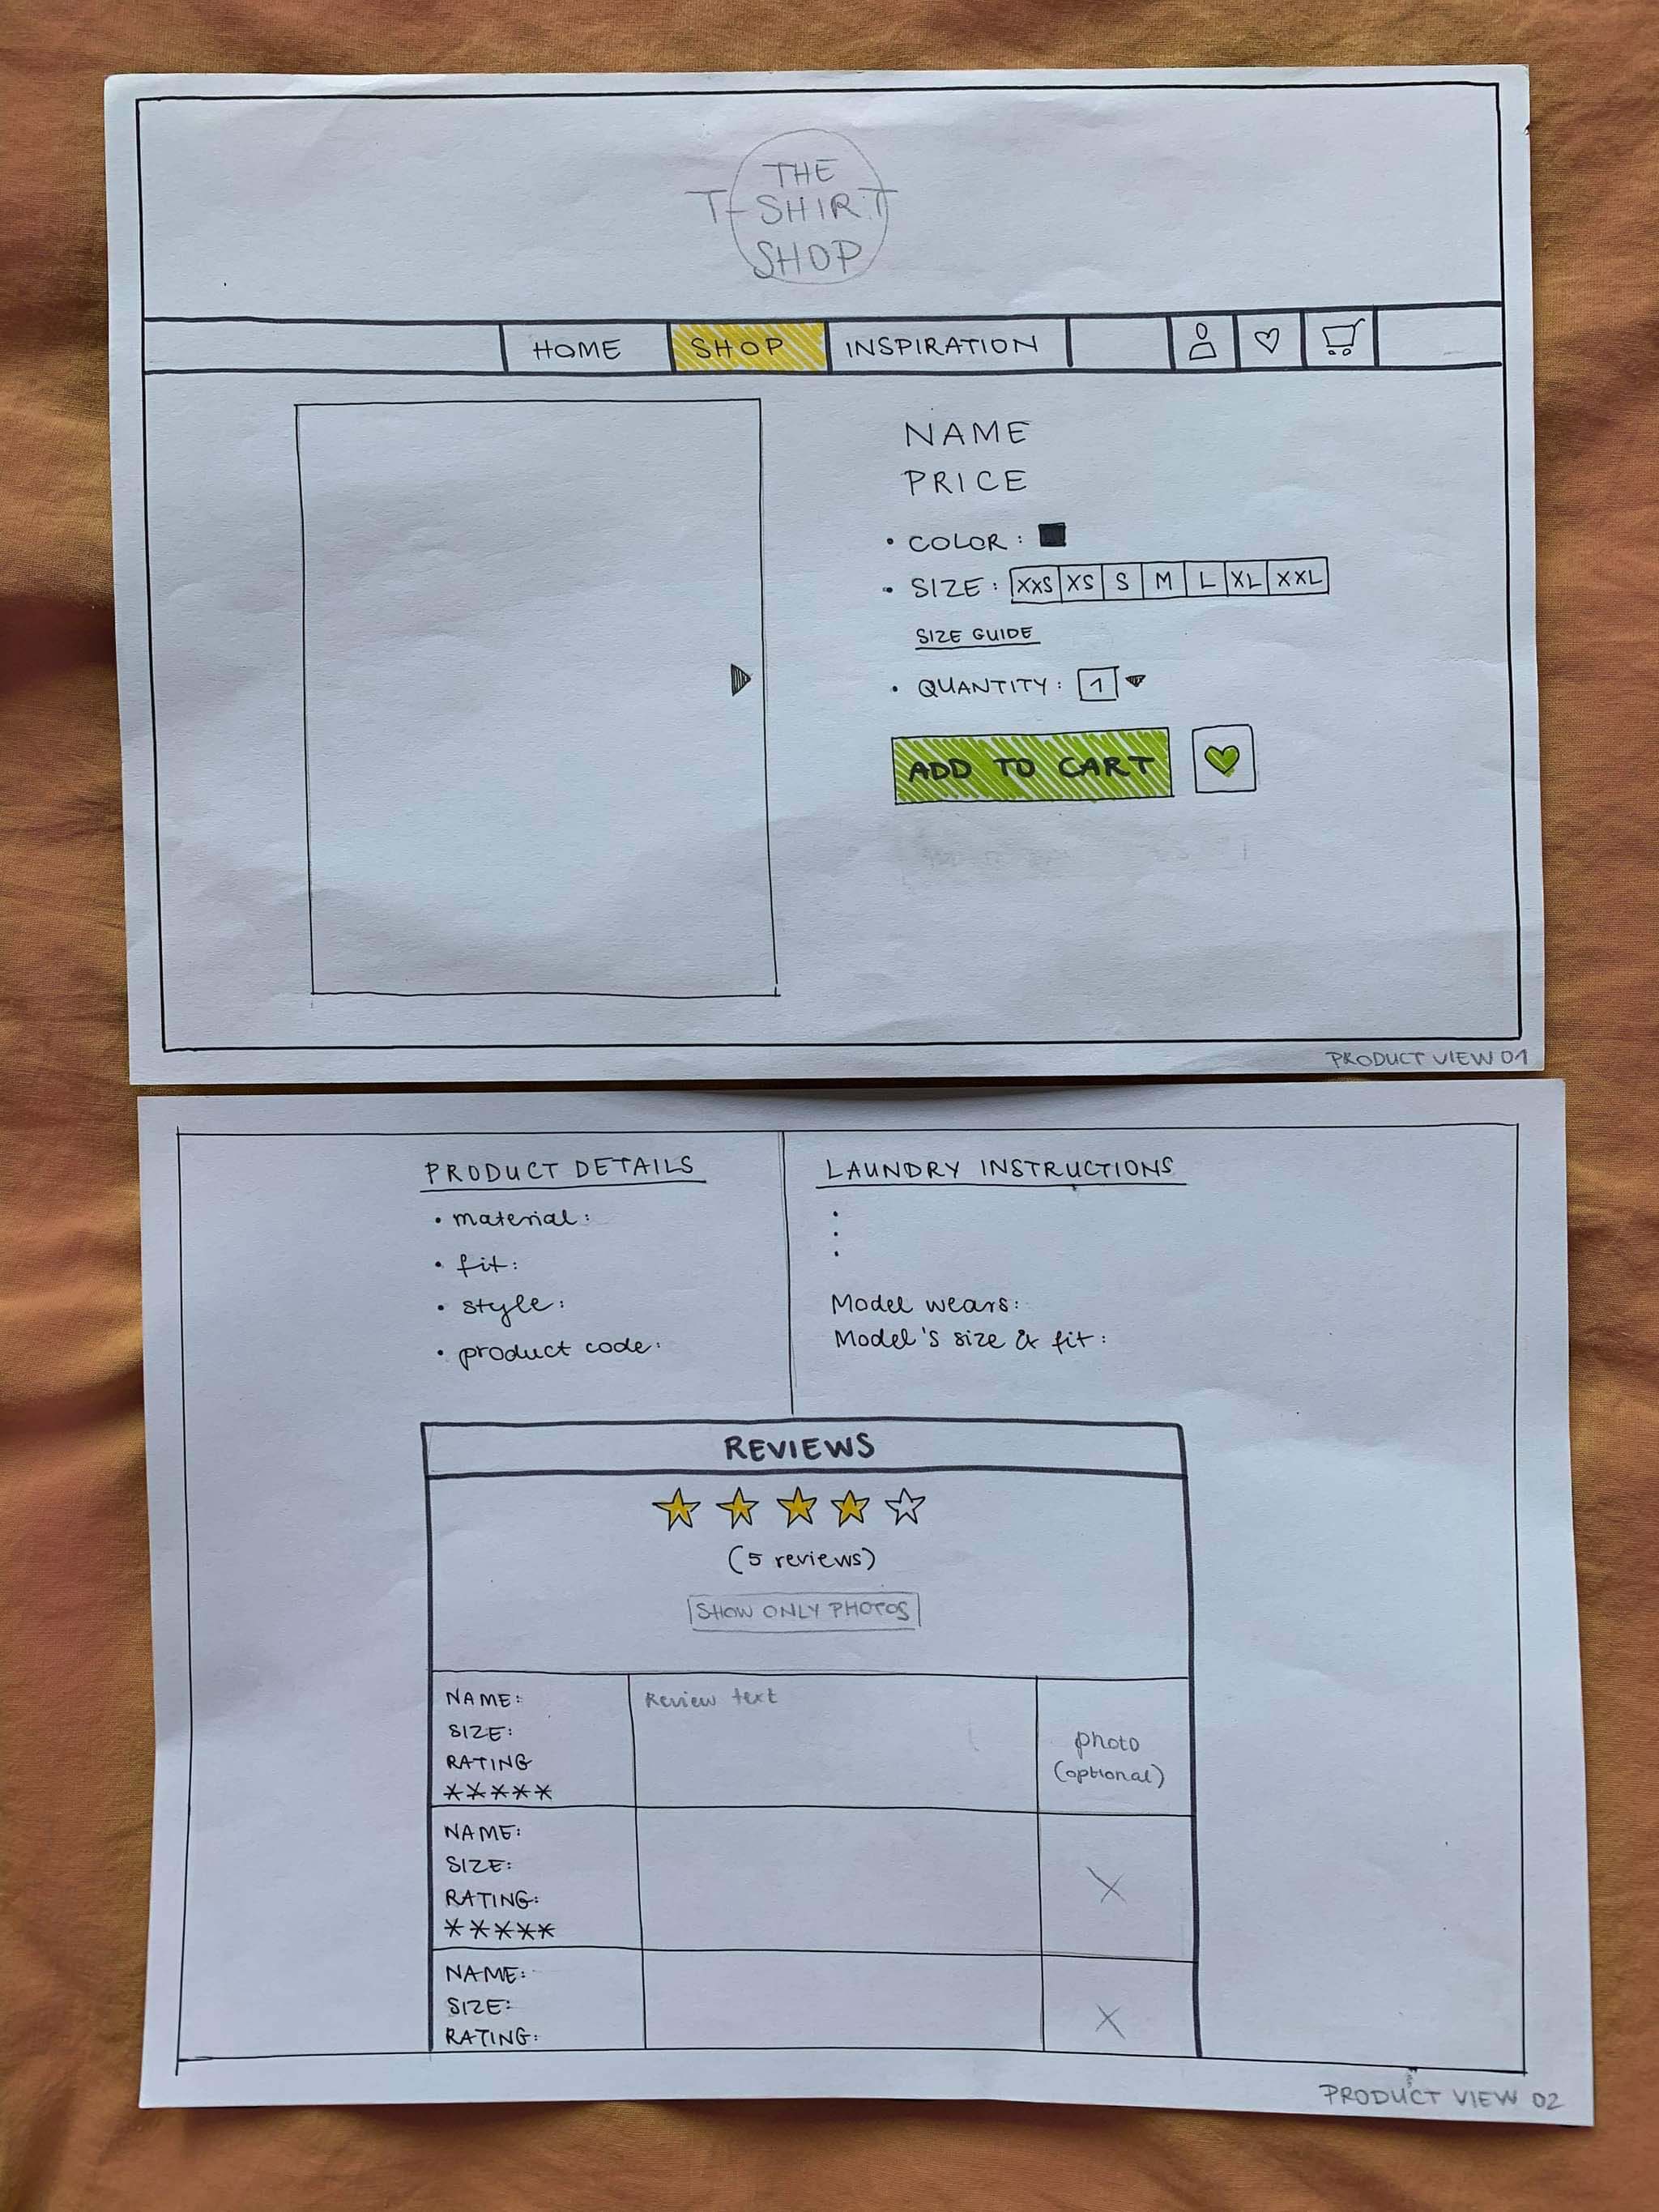 THE
T-SHIRT
SHOP
HOME SHOP INSPIRATION
NAME
PRICE
• COLOR:
• SIZE: XXS XS S M L XL XXL
SIZE GUIDE
• QUANTITY: 1
ADD TO CART
PRODUCT VIEW 01
PRODUCT DETAILS
• material:
• fit:
• style:
• product code:
LAUNDRY INSTRUCTIONS
•
•
•
Model wears:
Model's size & fit:
REVIEWS
(5 reviews)
SHOW ONLY PHOTOS
NAME:
SIZE:
RATING
*****
Review text
photo
(optional)
NAME:
SIZE:
RATING:
*****
X
NAME:
SIZE:
RATING:
X
PRODUCT VIEW 02